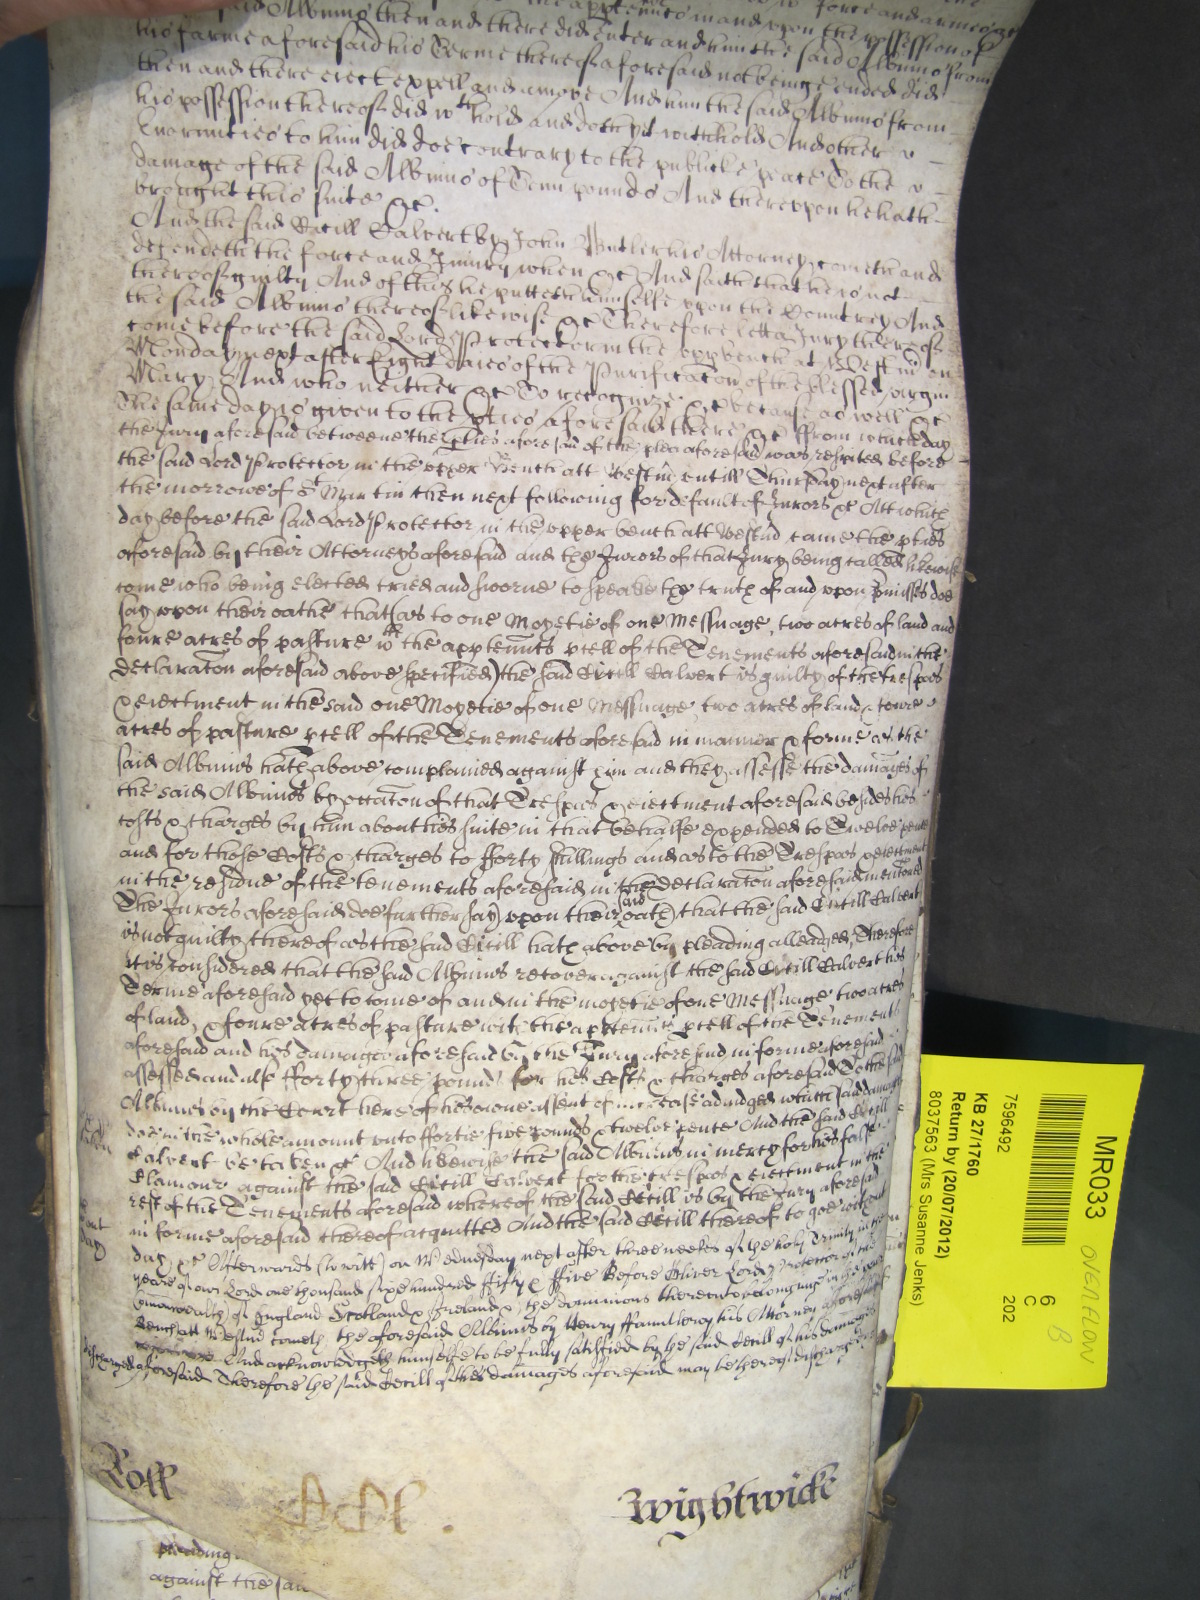 said Albinus then and there did enter and him the said Albinus from
his farme aforesaid his Terme thereof aforesaid not beinge ended did
then and there eiect expell and amove And him the said Albinus from
his possession thereof did wth hold and doth yet withhold And other
Enormities to him did doe contrary to the publicke peace To the
damage of the said Albinus of Tenn pounds And thereuppon he hath
brought this suite &c.
And the said Cecill Calvert by John Butler his Attorney cometh and
defendeth the force and Iniury when &c And saith that he is not
thereof guilty And of this he putteth himselfe upon the Countrey And
the said Albinus thereof likewise &c Therefore lett a Jury thereof
come before the said Lord Protector in the upper bench at Westmr on
Monday next after Eight daies of the Purificacon of the blessed virgin
Mary And who neither &c To recognize &c because as well &c
The same day is given to the pties aforesaid there &c ffrom which day
the Jury aforesaid betweene the pties aforesaid of the plea aforesaid was respited before
the said Lord Protector in the upper Bench att Westmr untill Thursday next after
the morrowe of St Martin then next following for default of Jurors &c Att which
day before the said Lord Protector in the upper bench att Westmr came the pties
aforesaid by their Attorneys aforesaid and the Jurors of that Jury being called likewise
come who being elected tried and sworne to speake the truth of and upon pmisses doe
say upon their oathe that (as to one Moyetie of one Messuage, two acres of land and
foure acres of pasture wth the apptennts pcell of the Tenements aforesaid in the
Declaracon aforesaid above specified) the said Cecill Calvert is guilty of the trespas
& eiectment in the said one Moyetie of one Messuage, two acres of land & foure
acres of pasture pcell of the Tenements aforesaid in manner & forme as the
said Albinus hath above complained against him and they assesse the damages of
the said Albinus by occacon of that Trespas & eiectment aforesaid besides his
costs & charges by him about his suite in that behalfe expended to Twelve pence
and for those Costs & charges to fforty shillings and as to the Trespas & eiectment
in the residue of the tenements aforesaid in the Declaracon aforesaid mentioned
The Jurors aforesaid doe further say upon their said oath that the said Cecill Calvert
is not guilty thereof as the said Cecill hath above by pleading alleadged, Therefore
it is considered that the said Albinus recover against the said Cecill Calvert his
Terme aforesaid yet to come of and in the moyetie of one Messuage two acres
of land, & foure acres of pasture with the apptennts pcell of the Tenements
aforesaid and his damages aforesaid by the Jury aforesaid in forme aforesaid
assessed and also fforty three pounds for his Costs & charges aforesaid To the said
Albinus by the Court here of his owne assent of increase adiudged which said damages
doe in the whole amount unto fforty five pounds & twelve pence And the said Cecill
Calvert be taken &c And likewise the said Albinus in mercy for his false
Clamour against the said Cecill Calvert for the trespas & eiectment in the
rest of the Tenements aforesaid whereof the said Cecill is by the Jury aforesaid
in forme aforesaid thereof acquitted And the said Cecill thereof to goe without
day &c Afterwards (to witt) on Wednesday next after three weekes of the holy Trinity in the
yeare of our Lord one thousand six hundred fifty & five Before Oliver Lord Protector of the
Commonwealth of England Scotland & Ireland & the dominions thereunto belonging in the upper
Bench att Westmr cometh the aforesaid Albinus by Henry his Attorney aforesaid
And acknowledgeth himselfe to be fully satisfied by the said Cecill of his damages
aforesaid Therefore the said Cecill of the damages aforesaid may be thereof discharged
discharged
day
Roll
Wightwicke
pleading
against the said
MR033
OVERFLOW
B
7596492
6
C
202
KB 27/1760
Return by (20/07/2012)
8037563 (Mrs Susanne Jenks)